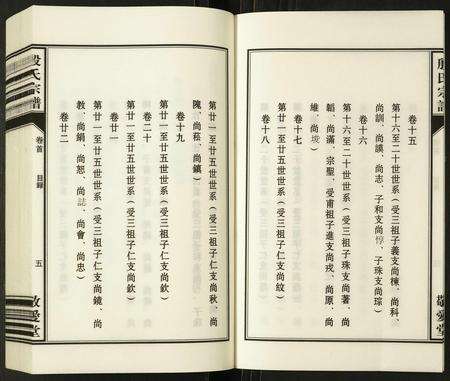 殷氏宗譜
敬愛堂
卷十五
第十六至二十世世系(受三祖子義支尚棟、尚科、
尚訓、尚謨、尚志、子和支尚惇、子珠支尚琮)
卷十六
第十六至二十世世系(受三祖子珠支尚著、尚
韜、尚滿、宗聖、受甫祖子進支尚戎、尚原、尚
維、尚埈)
卷十七
第廿一至廿五世世系(受三祖子仁支尚紋)
卷十八
第廿一至廿五世世系(受三祖子仁支尚秋、尚
隗、尚蓓、尚鎮)
卷十九
第廿一至廿五世世系(受三祖子仁支尚欽)
卷二十
第廿一至廿五世世系(受三祖子仁支尚欽)
卷廿一
第廿一至廿五世世系(受三祖子仁支尚鏡、尚
教、尚絹、尚恕、尚誌、尚會、尚忠)
卷廿二
殷氏宗譜
卷首
目錄
五
敬愛堂